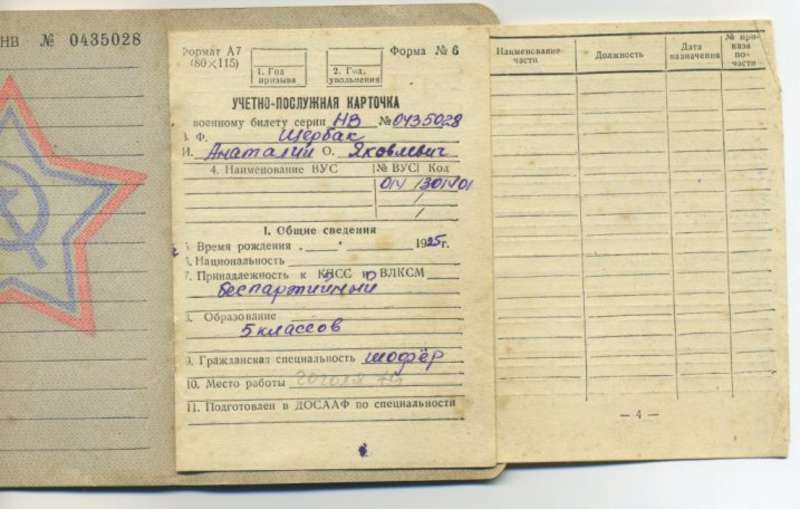 НВ № 0435028
Формат А7
(80×115)
Форма № 6
1. Год
призыва
2. Год
увольнения
УЧЕТНО-ПОСЛУЖНАЯ КАРТОЧКА
военному билету серии НВ № 0435028
3. Ф. Щербак
И. Анаталий О. Яковлевич
4. Наименование ВУС № ВУС Код
014 301401
I. Общие сведения
5. Время рождения 1925 г.
6. Национальность
7. Принадлежность к КПСС и ВЛКСМ
беспартийный
8. Образование
5 классов
9. Гражданская специальность шофёр
10. Место работы
11. Подготовлен в ДОСААФ по специальности
Наименование
части
Должность
Дата
назначения
№ при-
каза
по
части
— 4 —